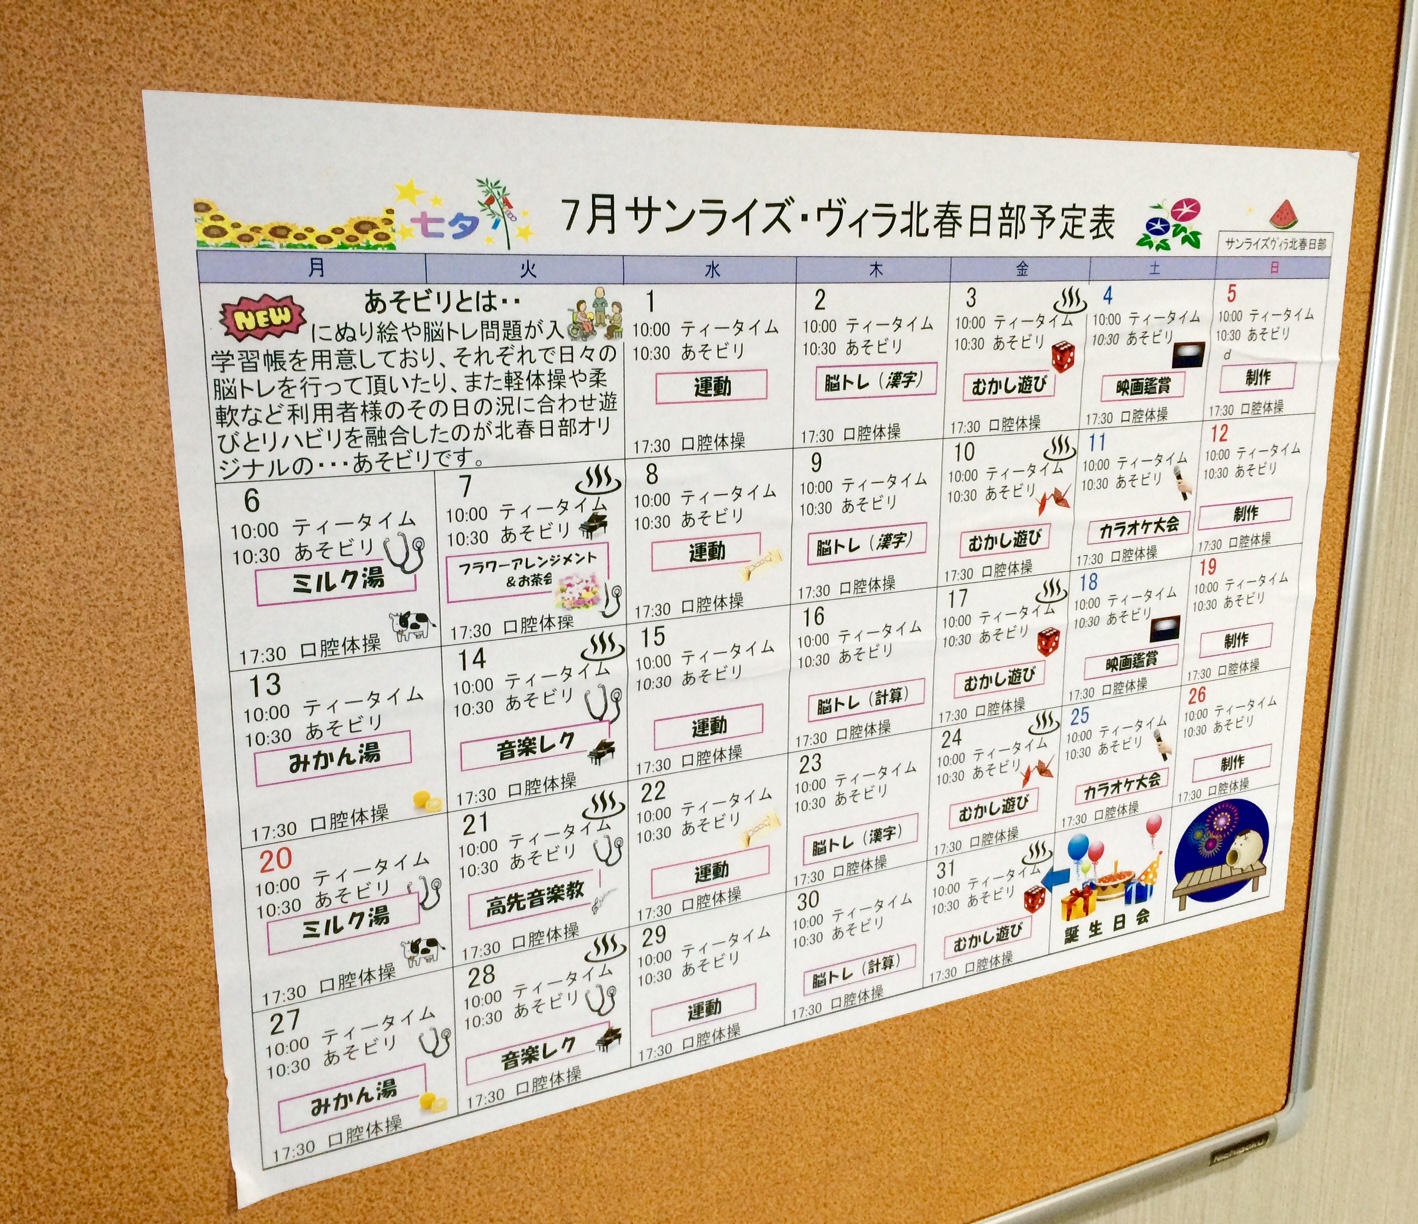 七夕
7月サンライズ・ヴィラ北春日部予定表
サンライズヴィラ北春日部
月 火 水 木 金 土 日
NEW
あそビリとは‥
にぬり絵や脳トレ問題が入
学習帳を用意しており、それぞれで日々の
脳トレを行って頂いたり、また軽体操や柔
軟など利用者様のその日の況に合わせ遊
びとリハビリを融合したのが北春日部オリ
ジナルの・・・あそビリです。
1
10:00 ティータイム
10:30 あそビリ
運動
17:30 口腔体操
2
10:00 ティータイム
10:30 あそビリ
脳トレ(漢字)
17:30 口腔体操
3
10:00 ティータイム
10:30 あそビリ
むかし遊び
17:30 口腔体操
4
10:00 ティータイム
10:30 あそビリ
映画鑑賞
17:30 口腔体操
5
10:00 ティータイム
10:30 あそビリ
d
制作
17:30 口腔体操
6
10:00 ティータイム
10:30 あそビリ
ミルク湯
17:30 口腔体操
7
10:00 ティータイム
10:30 あそビリ
フラワーアレンジメント
&お茶会
17:30 口腔体操
8
10:00 ティータイム
10:30 あそビリ
運動
17:30 口腔体操
9
10:00 ティータイム
10:30 あそビリ
脳トレ(漢字)
17:30 口腔体操
10
10:00 ティータイム
10:30 あそビリ
むかし遊び
17:30 口腔体操
11
10:00 ティータイム
10:30 あそビリ
カラオケ大会
17:30 口腔体操
12
10:00 ティータイム
10:30 あそビリ
制作
17:30 口腔体操
13
10:00 ティータイム
10:30 あそビリ
みかん湯
17:30 口腔体操
14
10:00 ティータイム
10:30 あそビリ
音楽レク
17:30 口腔体操
15
10:00 ティータイム
10:30 あそビリ
運動
17:30 口腔体操
16
10:00 ティータイム
10:30 あそビリ
脳トレ(計算)
17:30 口腔体操
17
10:00 ティータイム
10:30 あそビリ
むかし遊び
17:30 口腔体操
18
10:00 ティータイム
10:30 あそビリ
映画鑑賞
17:30 口腔体操
19
10:00 ティータイム
10:30 あそビリ
制作
17:30 口腔体操
20
10:00 ティータイム
10:30 あそビリ
ミルク湯
17:30 口腔体操
21
10:00 ティータイム
10:30 あそビリ
高先音楽教
17:30 口腔体操
22
10:00 ティータイム
10:30 あそビリ
運動
17:30 口腔体操
23
10:00 ティータイム
10:30 あそビリ
脳トレ(漢字)
17:30 口腔体操
24
10:00 ティータイム
10:30 あそビリ
むかし遊び
17:30 口腔体操
25
10:00 ティータイム
10:30 あそビリ
カラオケ大会
17:30 口腔体操
26
10:00 ティータイム
10:30 あそビリ
制作
17:30 口腔体操
27
10:00 ティータイム
10:30 あそビリ
みかん湯
17:30 口腔体操
28
10:00 ティータイム
10:30 あそビリ
音楽レク
17:30 口腔体操
29
10:00 ティータイム
10:30 あそビリ
運動
17:30 口腔体操
30
10:00 ティータイム
10:30 あそビリ
脳トレ(計算)
17:30 口腔体操
31
10:00 ティータイム
10:30 あそビリ
むかし遊び
17:30 口腔体操
誕生日会